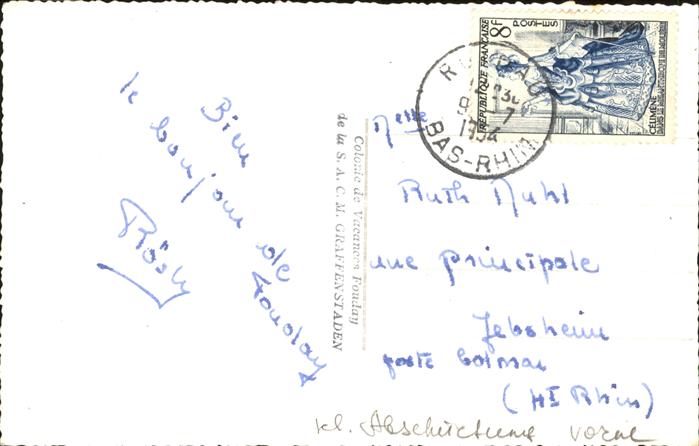 Bien
le bonjour de
Fouday
Rösly
Colonie de Vacances Fouday
de la S. A. C. M. GRAFFENSTADEN
8F
POSTES
RÉPUBLIQUE FRANÇAISE
CÉLIMÈNE
BAS-RHIN
1954
Melle
Ruth
rue Principale
Jebsheim
poste Colmar
(Ht Rhin)
kl. Abschürfung vorne